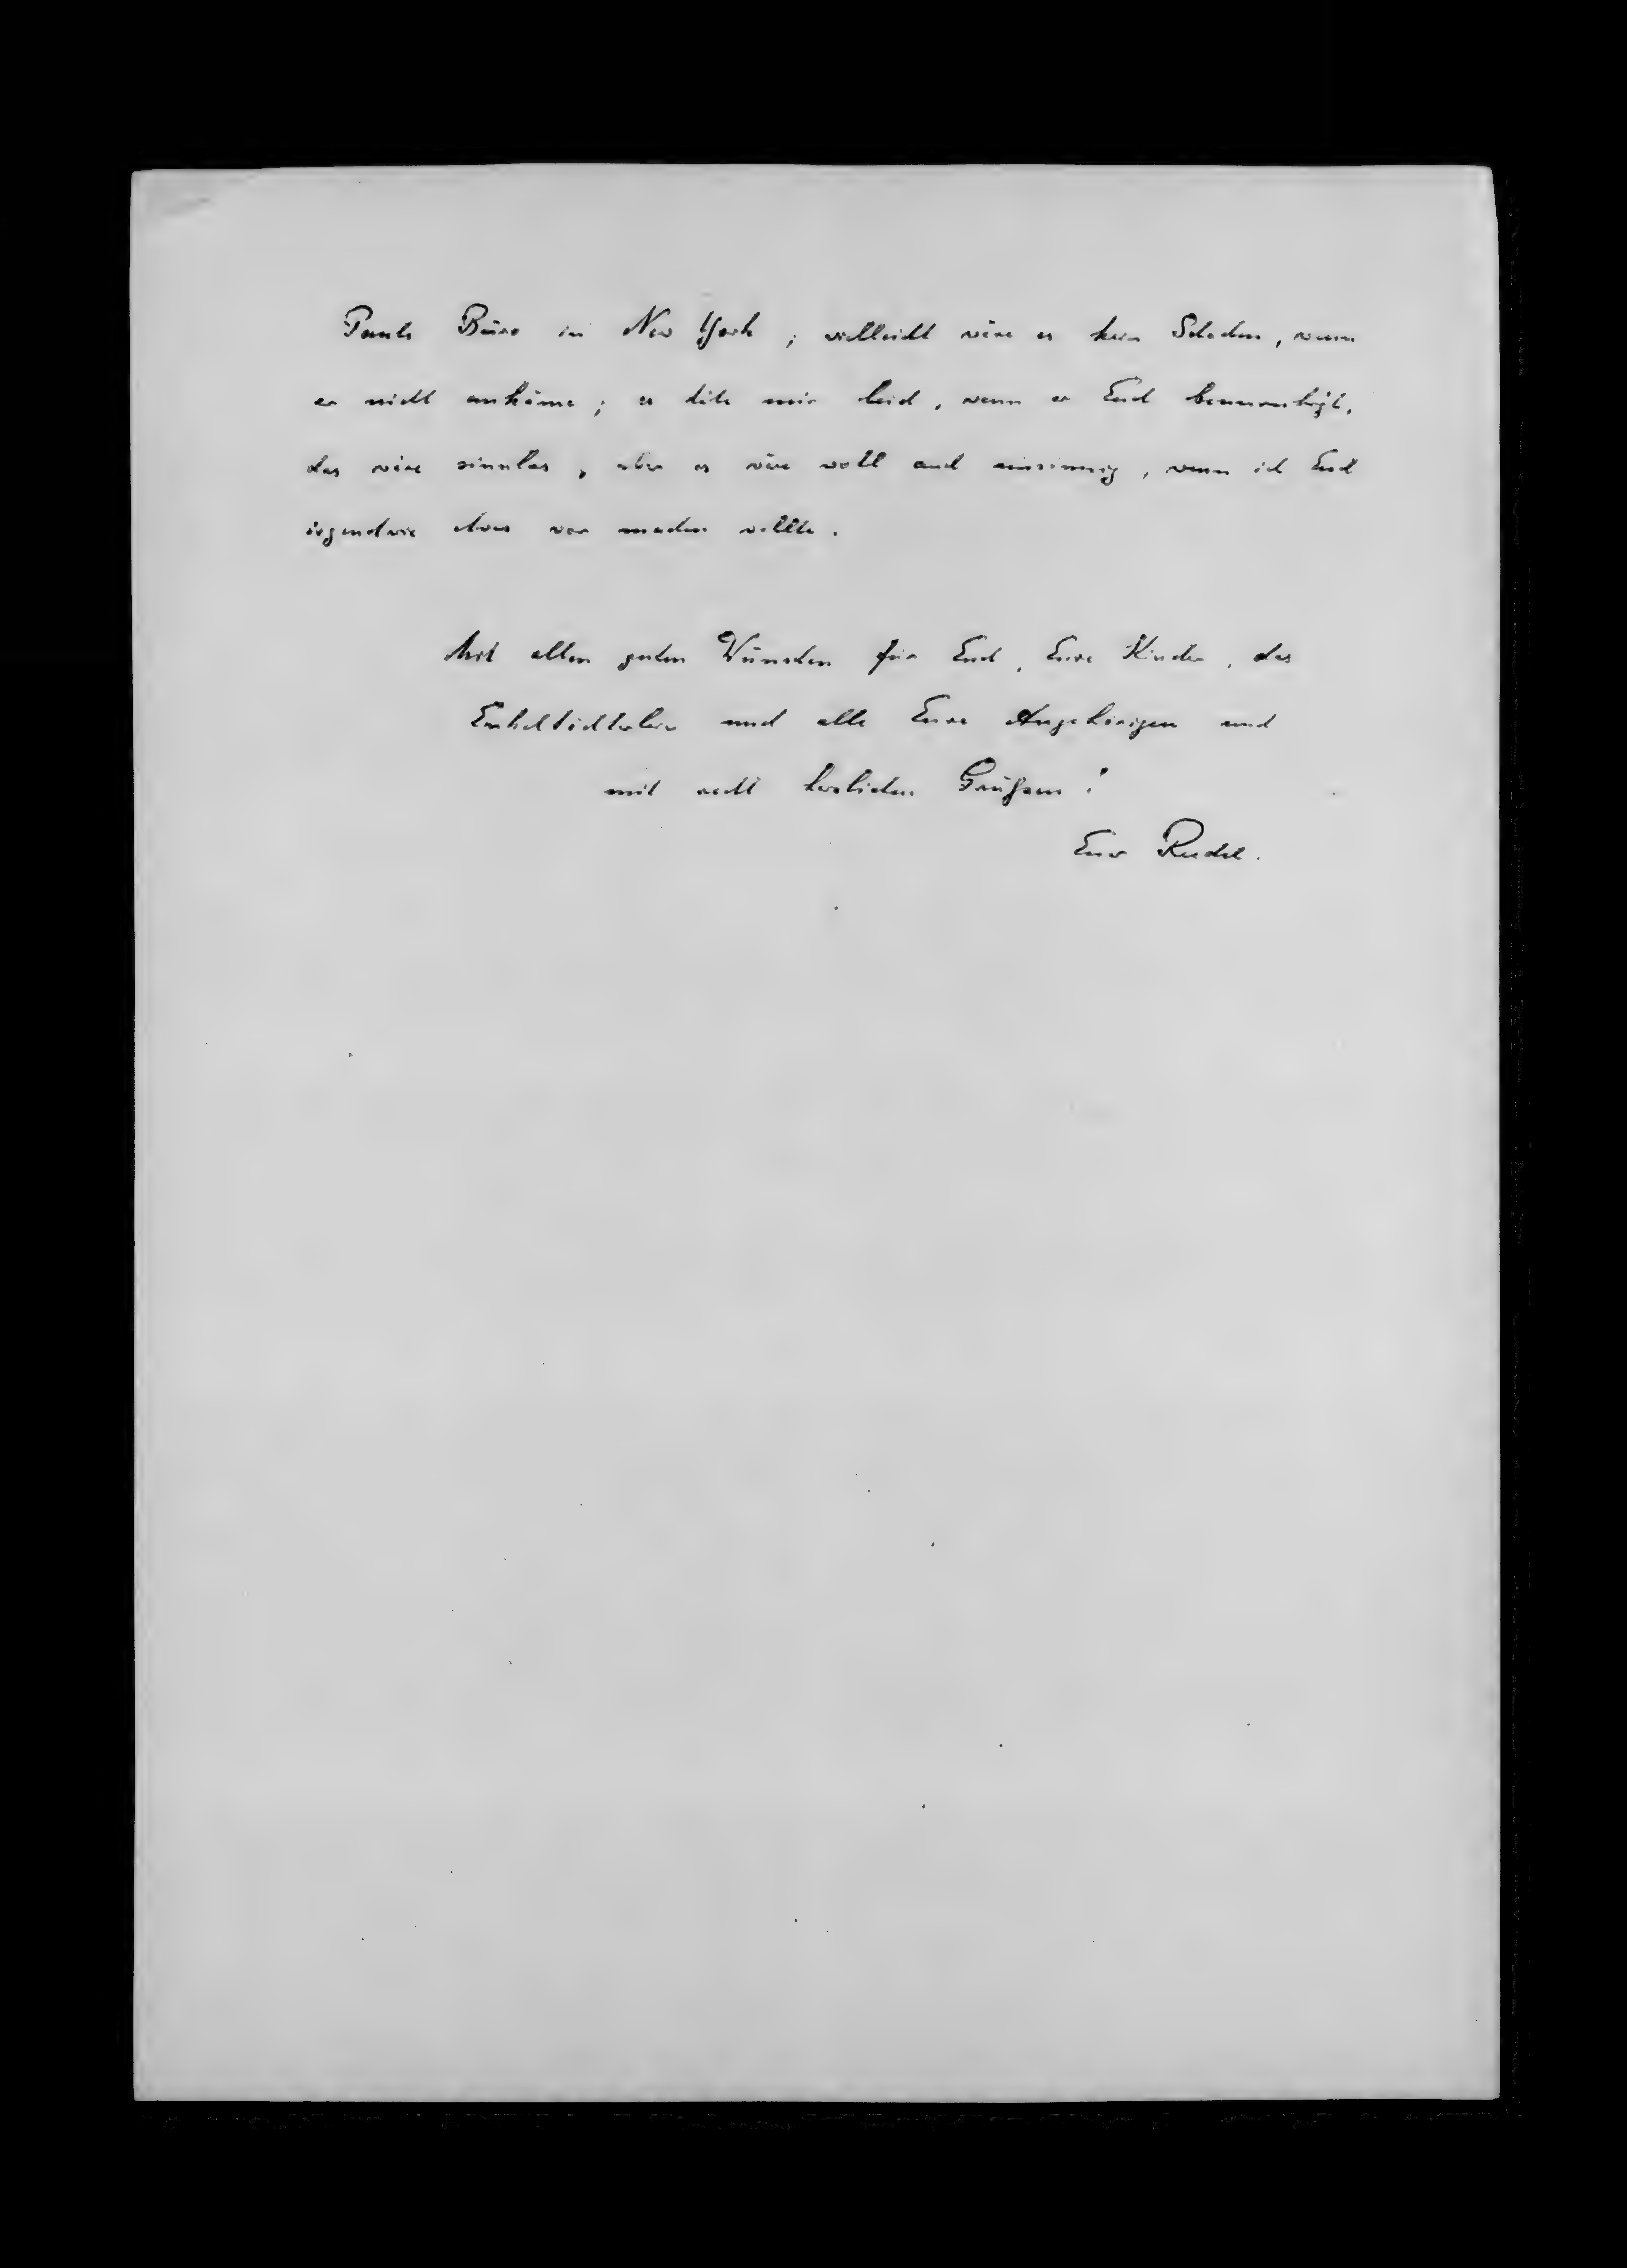 Pauls Büro in New York ; vielleicht wäre es kein Schaden, wenn
er nicht ankäme ; es täte mir leid, wenn er Euch beunruhigt,
das wäre sinnlos, aber es wäre wohl auch unsinnig, wenn ich Euch
irgendwie etwas vor machen wollte.
Mit allen guten Wünschen für Euch, Eure Kinder, das
Enkeltöchterlein und alle Eure Angehörigen und
mit recht herzlichen Grüßen!
Euer Rudel.